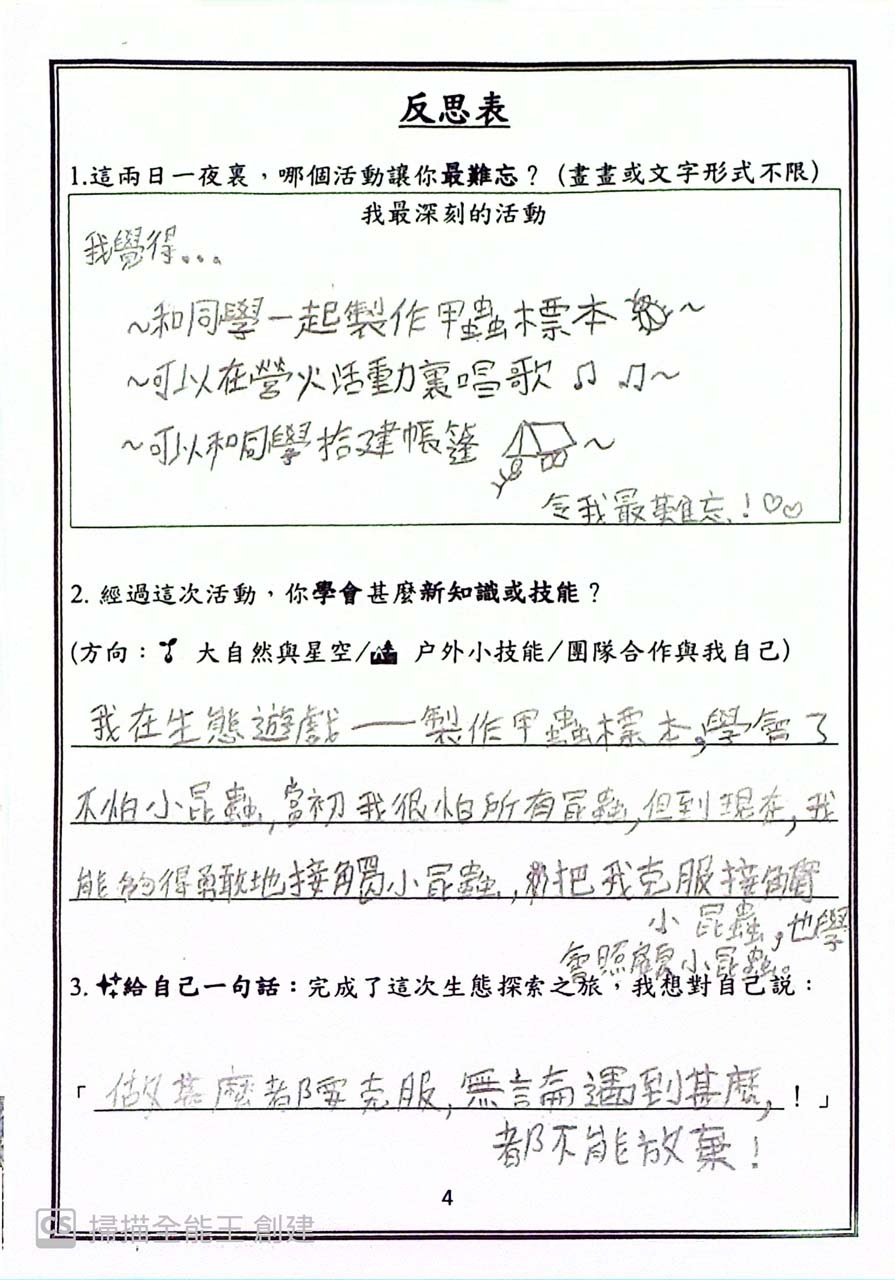 反思表
1.這兩日一夜裏，哪個活動讓你最難忘？（畫畫或文字形式不限）
我最深刻的活動
我覺得...。
~和同學一起製作甲蟲標本~
~可以在營火活動裏唱歌 ♫ ♫~
~可以和同學拾建帳篷~
令我最難忘！♡♡
2. 經過這次活動，你學會甚麼新知識或技能？
(方向： 大自然與星空/ 户外小技能/團隊合作與我自己)
我在生態遊戲——製作甲蟲標本，學會了
不怕小昆蟲，當初我很怕所有昆蟲，但到現在，我
能夠得勇敢地接觸小昆蟲，把我克服接觸
小昆蟲，也學
會照顧小昆蟲。
3. 給自己一句話：完成了這次生態探索之旅，我想對自己說：
「做甚麼都要克服，無論遇到甚麼，！」
都不能放棄！
4
CS 掃描全能王 創建